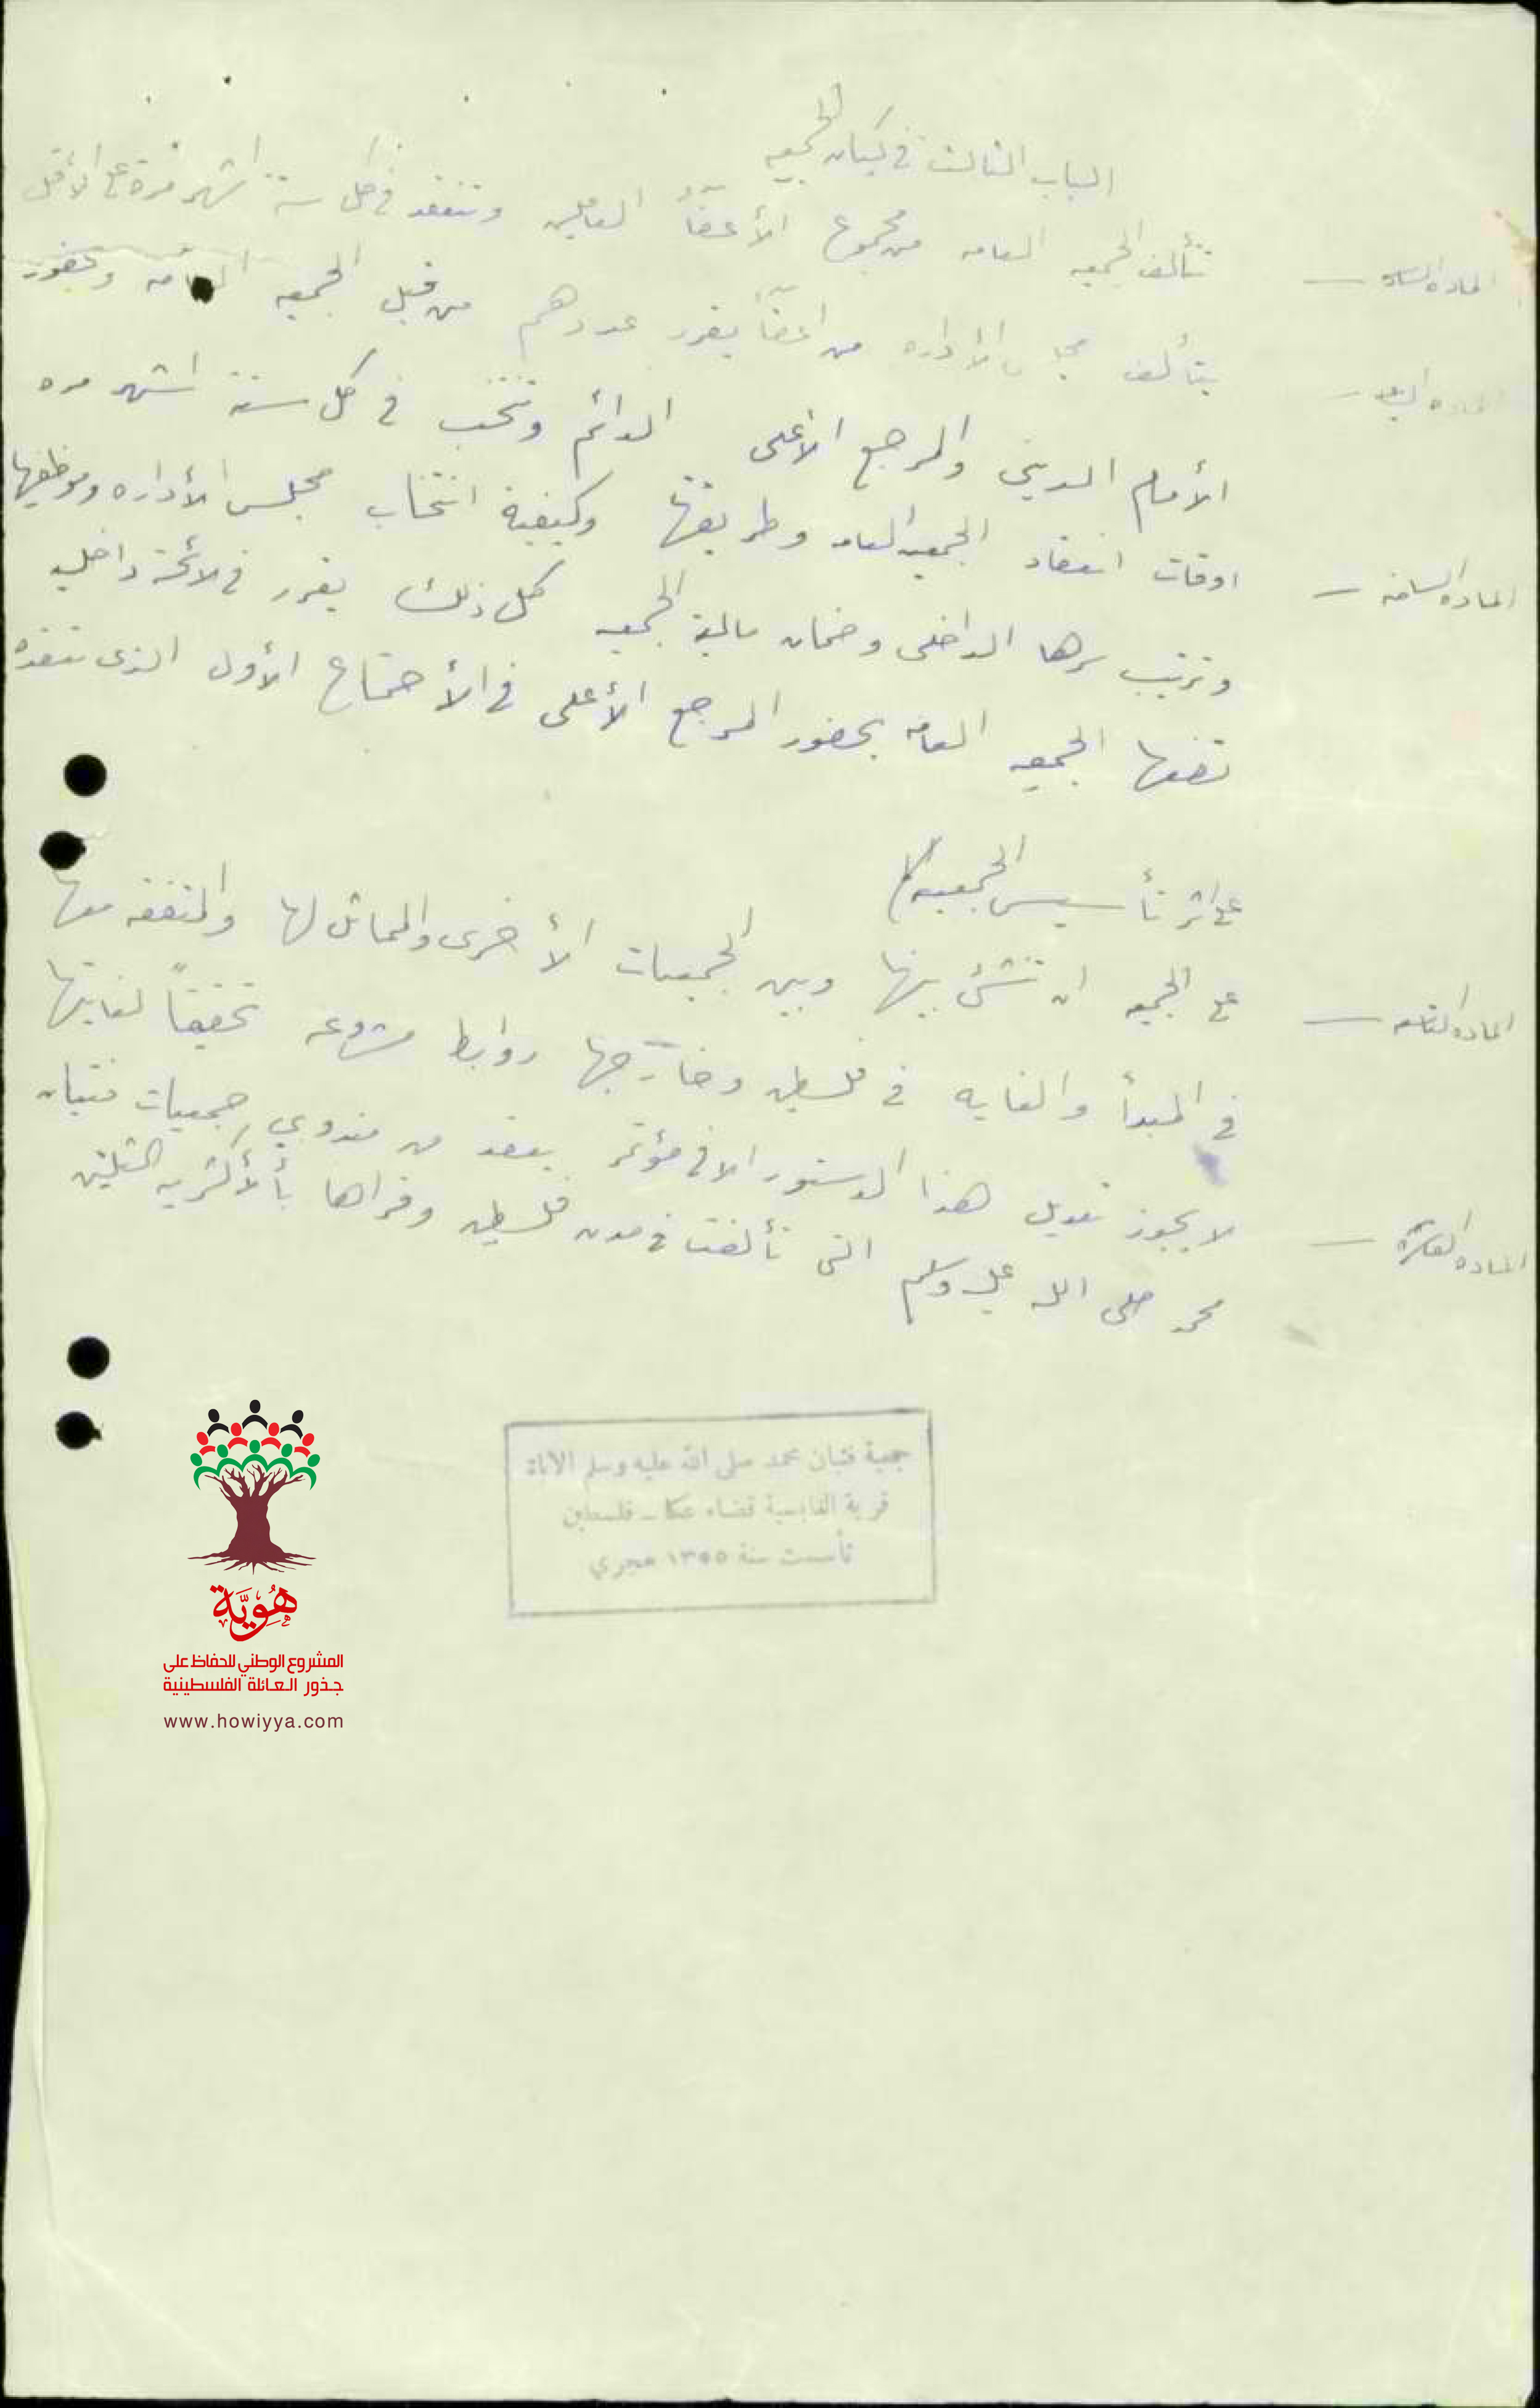 الباب الثالث في كيان الجمعيه
الماده السادسه — تتألف الجمعيه العامه من مجموع الأعضآء العاملين وتنعقد في كل ستة اشهر مرة على الأقل
الماده السابعه — يتألف مجلس الأداره من اعضآء يقرر عددهم من قبل الجمعيه العامه وبحضور
الأمام الديني والمرجع الأعلى الدائم وتنتخب في كل ستة اشهر مره
الماده الثامنه — اوقات انعقاد الجمعيه العامه وطريقتها وكيفية انتخاب مجلس الأداره وموظفيها
وترتيب سرها الداخلي وضمان مالية الجمعيه كل ذلك يقرر في لائحة داخليه
تضعها الجمعيه العامه بحضور المرجع الأعلى في الأجتماع الأول الذي تنعقده
على اثر تأسيس الجمعيه
الماده التاسعه — على الجمعيه ان تنشئ بينها وبين الجمعيات الأخرى والمماثل لها والمتفقه معها
في المبدأ والغايه في فلسطين وخارجها روابط مشروعه تحقيقاً لغايتها
الماده العاشره — لا يجوز تعديل هذا الدستور الا في مؤتمر يعقد من مندوبي جمعيات فتيان
محمد صلى الله عليه وسلم التي تألفت في مدن فلسطين وقراها بألأكثريه الثلثين
جمعية فتيان محمد صلى الله عليه وسلم
قرية الغابسية قضاء عكا ــ فلسطين
تأسست سنة ١٣٥٥ هجري
هُوِيَّة
المشروع الوطني للحفاظ على
جذور العائلة الفلسطينية
www.howiyya.com